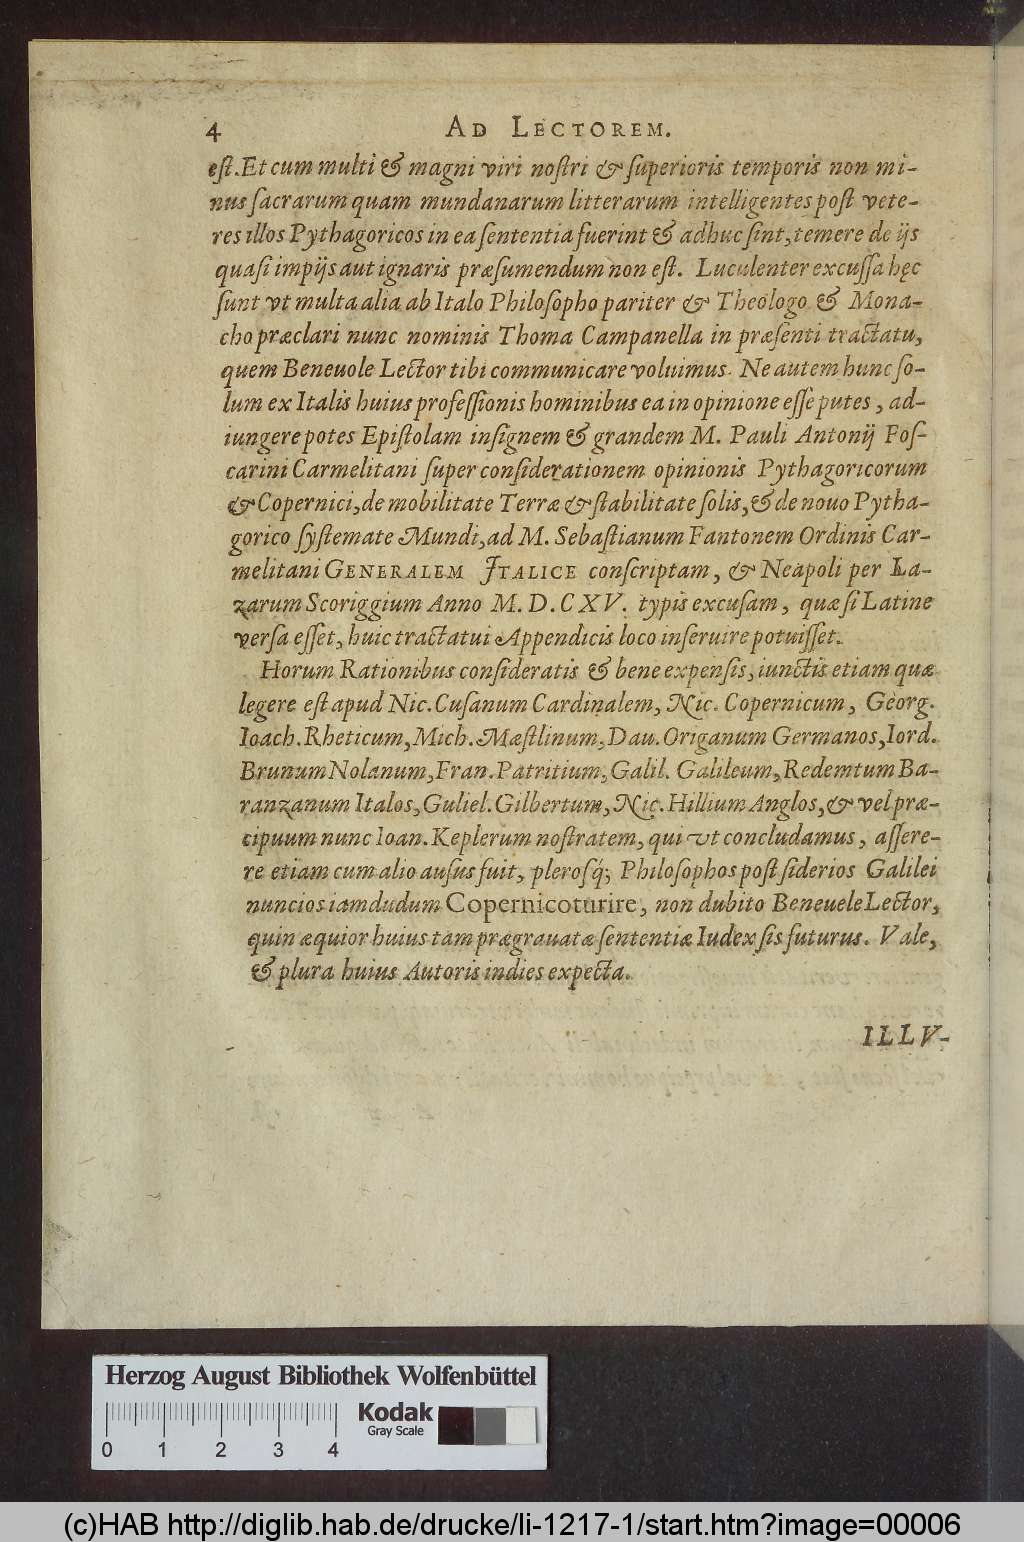 4 AD LECTOREM.
est. Et cum multi & magni viri nostri & superioris temporis non mi-
nus sacrarum quam mundanarum litterarum intelligentes post vete-
res illos Pythagoricos in ea sententia fuerint & adhuc sint, temere de ijs
quasi impijs aut ignaris præsumendum non est. Luculenter excussa hęc
sunt vt multa alia ab Italo Philosopho pariter & Theologo & Mona-
cho præclari nunc nominis Thoma Campanella in præsenti tractatu,
quem Beneuole Lector tibi communicare voluimus. Ne autem hunc so-
lum ex Italis huius professionis hominibus ea in opinione esse putes, ad-
iungere potes Epistolam insignem & grandem M. Pauli Antonij Fos-
carini Carmelitani super considerationem opinionis Pythagoricorum
& Copernici, de mobilitate Terræ & stabilitate solis, & de nouo Pytha-
gorico systemate Mundi, ad M. Sebastianum Fantonem Ordinis Car-
melitani GENERALEM ITALICE conscriptam, & Neapoli per La-
zarum Scoriggium Anno M. D. CXV. typis excusam, quæ si Latine
versa esset, huic tractatui Appendicis loco inseruire potuisset.
Horum Rationibus consideratis & bene expensis, iunctis etiam quæ
legere est apud Nic. Cusanum Cardinalem, Nic. Copernicum, Georg.
Ioach. Rheticum, Mich. Mæstlinum, Dau. Origanum Germanos, Iord.
Brunum Nolanum, Fran. Patritium, Galil. Galileum, Redemtum Ba-
ranzanum Italos, Guliel. Gilbertum, Nic. Hillium Anglos, & vel præ-
cipuum nunc Ioan. Keplerum nostratem, qui vt concludamus, assere-
re etiam cum alio ausus fuit, plerosq; Philosophos post siderios Galilei
nuncios iamdudum Copernicoturire, non dubito Beneuele Lector,
quin æquior huius tam prægrauatæ sententiæ Iudex sis futurus. Vale,
& plura huius Autoris indies expecta.
ILLV-
Herzog August Bibliothek Wolfenbüttel
Kodak
Gray Scale
0 1 2 3 4
(c)HAB http://diglib.hab.de/drucke/li-1217-1/start.htm?image=00006